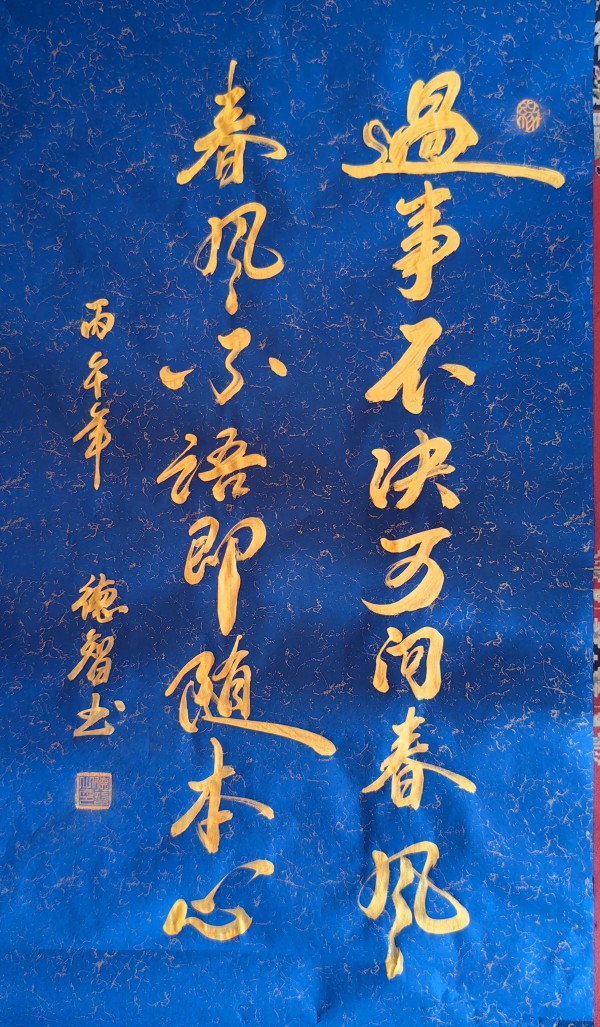 遇事不决可问春风
春风不语即随本心
丙午年
德智书